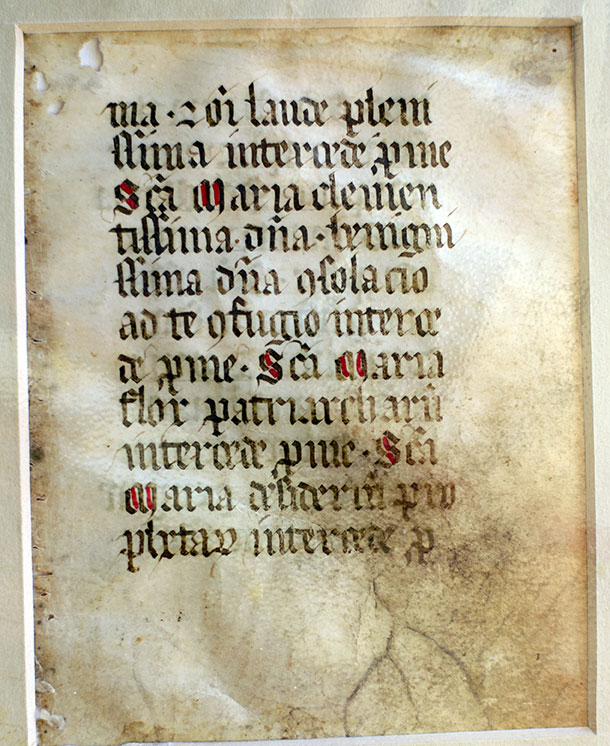 ma · ⁊ oı̄ laude pleni
ssima intercede ꝓ me
Sc̄a Maria clemen
tissima · dn̄a · benigni
ssima dn̄a ꝯsolacio
ad te ꝯfugio interce
de ꝓ me · Sc̄a Maria
flor patriarcharū
intercede ꝓ me · Sc̄a
Maria desideriū ꝓ
intercede ꝓ